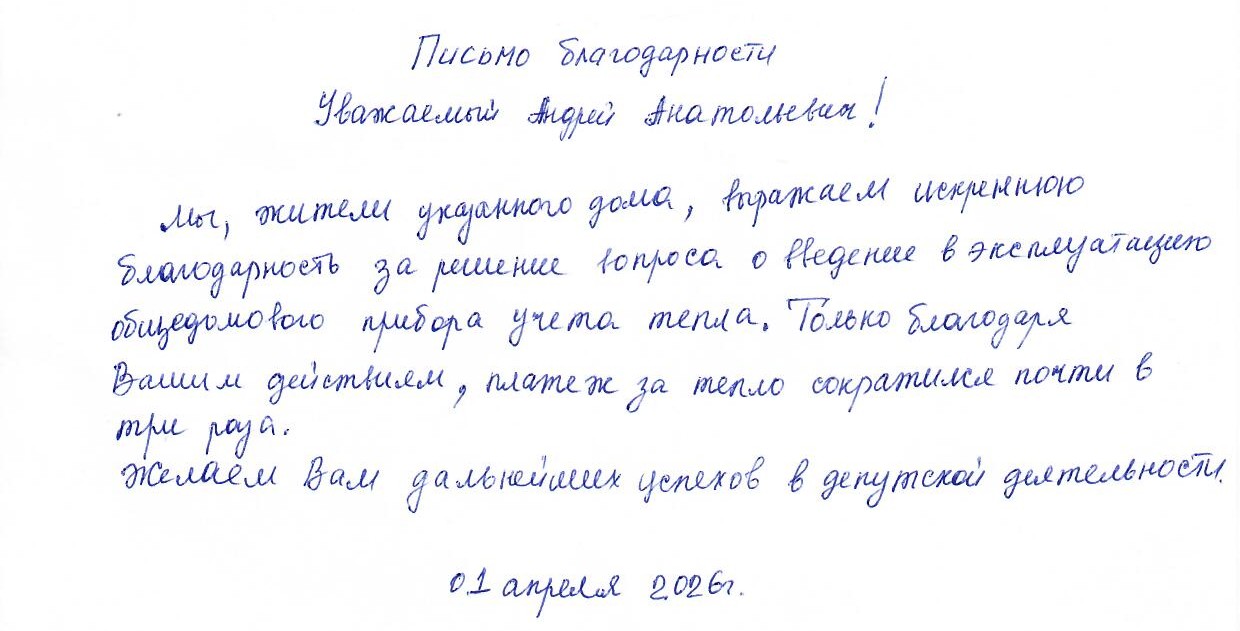 Письмо благодарности
Уважаемый Андрей Анатольевич!
Мы, жители указанного дома, выражаем искреннюю
благодарность за решение вопроса о введение в эксплуатацию
общедомового прибора учета тепла. Только благодаря
Вашим действиям, платеж за тепло сократился почти в
три раза.
Желаем Вам дальнейших успехов в депутской деятельности.
01 апреля 2026г.